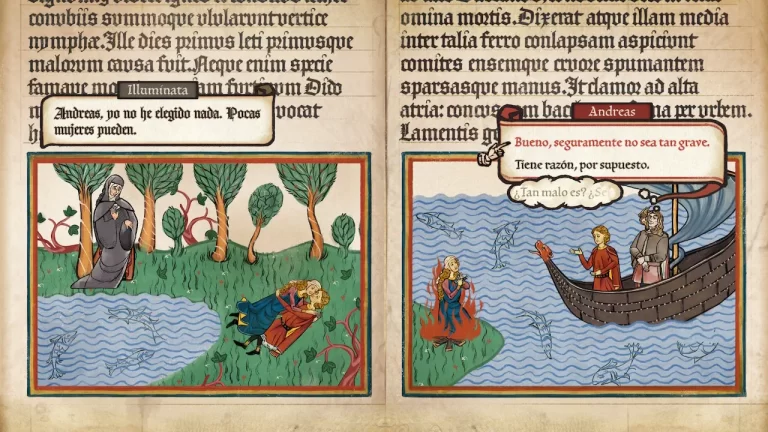 convbiis svmmoqve vlvlarvnt vertice
nymphæ. Ille dies primvs leti primvsqve
malorvm cavsa fvit. Neqve enim specie
famave
Dido
vocat
Illuminata
Andreas, yo no he elegido nada. Pocas
mujeres pueden.
omina mortis. Dixerat atqve illam media
inter talia ferro conlapsam aspicivnt
comites ensemqve crvore spvmantem
sparsasqve manus. It clamor ad alta
atria: per vrbem.
Lamentis
Andreas
Bueno, seguramente no sea tan grave.
Tiene razón, por supuesto.
¿Tan malo es?